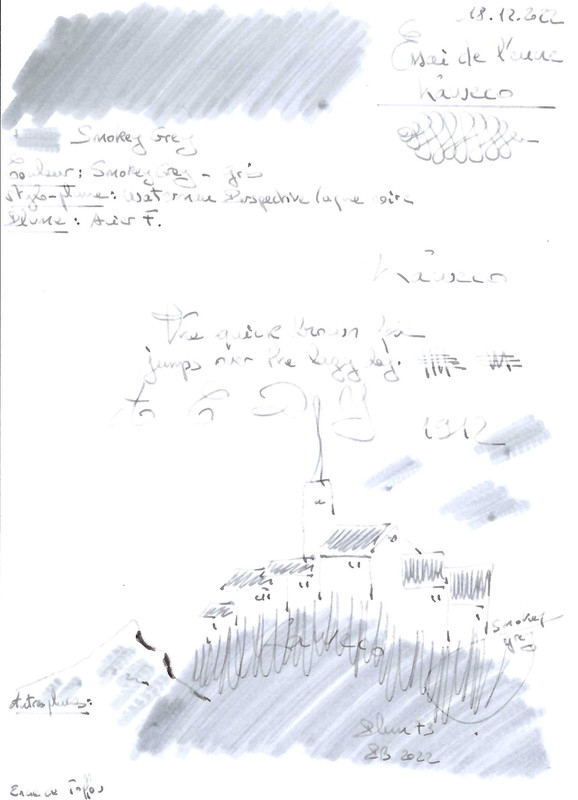 18.12.2022
Essai de l'encre
Kaweco
Smokey Grey
Couleur : Smokey Grey - gris
Stylo-plume : Waterman Perspective laque noire
Plume : Acier F.
Kaweco
The quick brown fox
jumps over the lazy dog.
1912
Smokey
grey
Kaweco
Autres plumes :
2022